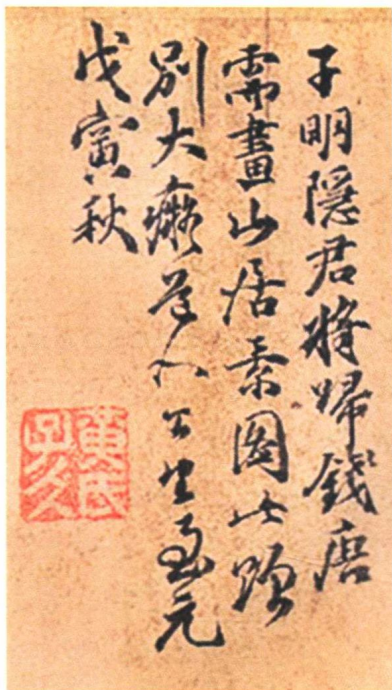 子明隱君將歸錢唐
需畫山居圖此贈
別大癡道人公望至元
戊寅秋
黃氏子久